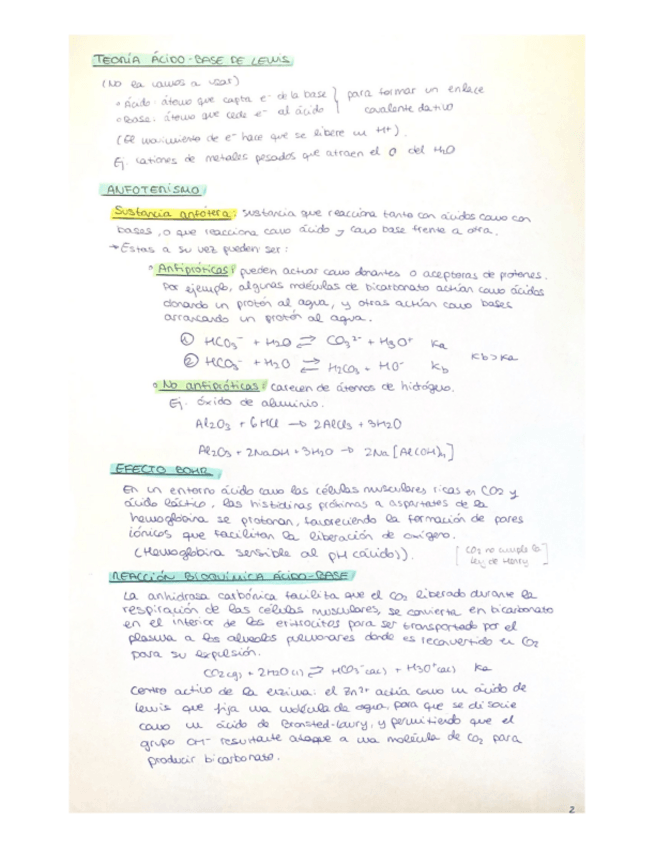 TEORÍA ÁCIDO-BASE DE LEWIS
(No la vamos a usar)
• Ácido: átomo que capta e⁻ de la base } para formar un enlace
• Base: átomo que cede e⁻ al ácido covalente dativo
(El movimiento de e⁻ hace que se libere un H+).
Ej. cationes de metales pesados que atraen el O del H₂O
ANFOTERISMO
Sustancia anfótera: sustancia que reacciona tanto con ácidos como con
bases, o que reacciona como ácido y como base frente a otra.
→ Estas a su vez pueden ser:
• Anfipróticas: pueden actuar como donantes o aceptoras de protones.
Por ejemplo, algunas moléculas de bicarbonato actúan como ácidos
donando un protón al agua, y otras actúan como bases
arrancando un protón al agua.
① HCO₃⁻ + H₂O ⇄ CO₃²⁻ + H₃O⁺ Ka
② HCO₃⁻ + H₂O ⇄ H₂CO₃ + HO⁻ Kb Kb>Ka
• No anfipróticas: carecen de átomos de hidrógeno.
Ej. óxido de aluminio.
Al₂O₃ + 6HCl → 2AlCl₃ + 3H₂O
Al₂O₃ + 2NaOH + 3H₂O → 2Na[Al(OH)₄]
EFECTO BOHR
En un entorno ácido como las células musculares ricas en CO₂ y
ácido láctico, las histidinas próximas a aspartatos de la
hemoglobina se protonan, favoreciendo la formación de pares
iónicos que facilitan la liberación de oxígeno.
(Hemoglobina sensible al pH (ácido)). [CO₂ no cumple la
ley de Henry]
REACCIÓN BIOQUÍMICA ÁCIDO-BASE
La anhidrasa carbónica facilita que el CO₂ liberado durante la
respiración de las células musculares, se convierta en bicarbonato
en el interior de los eritrocitos para ser transportado por el
plasma a los alveolos pulmonares donde es reconvertido en CO₂
para su expulsión.
CO₂(g) + 2H₂O(l) ⇄ HCO₃⁻(ac) + H₃O⁺(ac) Ka
Centro activo de la enzima: el Zn²⁺ actúa como un ácido de
Lewis que fija una molécula de agua, para que se disocie
como un ácido de Bronsted-Lowry, y permitiendo que el
grupo OH⁻ resultante ataque a una molécula de CO₂ para
producir bicarbonato.
2